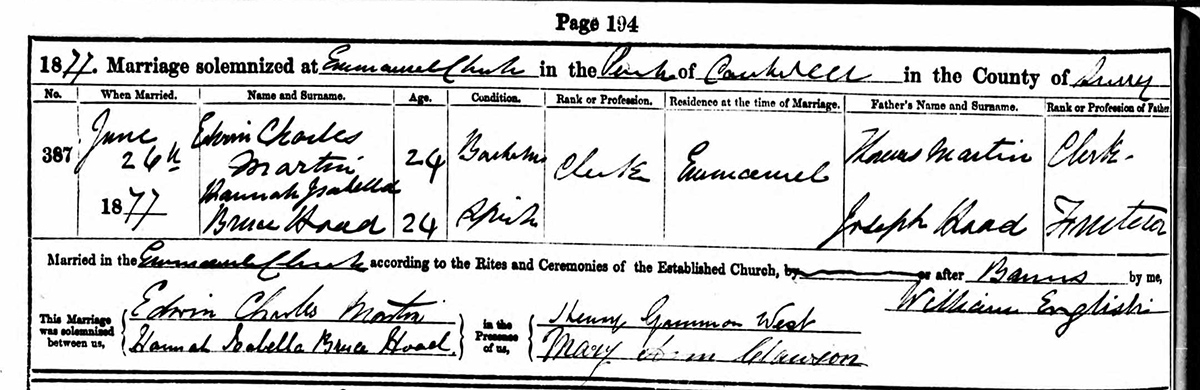 Page 194
1877. Marriage solemnized at Emmanuel Church in the Parish of Camberwell in the County of Surrey
No. When Married. Name and Surname. Age. Condition. Rank or Profession. Residence at the time of Marriage. Father's Name and Surname. Rank or Profession of Father
387 June 26th 1877 Edwin Charles Martin 24 Bachelor Clerk Emmanuel Thomas Martin Clerk
Hannah Isabella Bruce Hoad 24 Spinster Joseph Hoad Fruiterer
Married in the Emmanuel Church according to the Rites and Ceremonies of the Established Church, by or after Banns by me,
William English
This Marriage was solemnized between us, Edwin Charles Martin in the Presence of us, Henry Gammon West
Hannah Isabella Bruce Hoad. Mary Ann Clawson